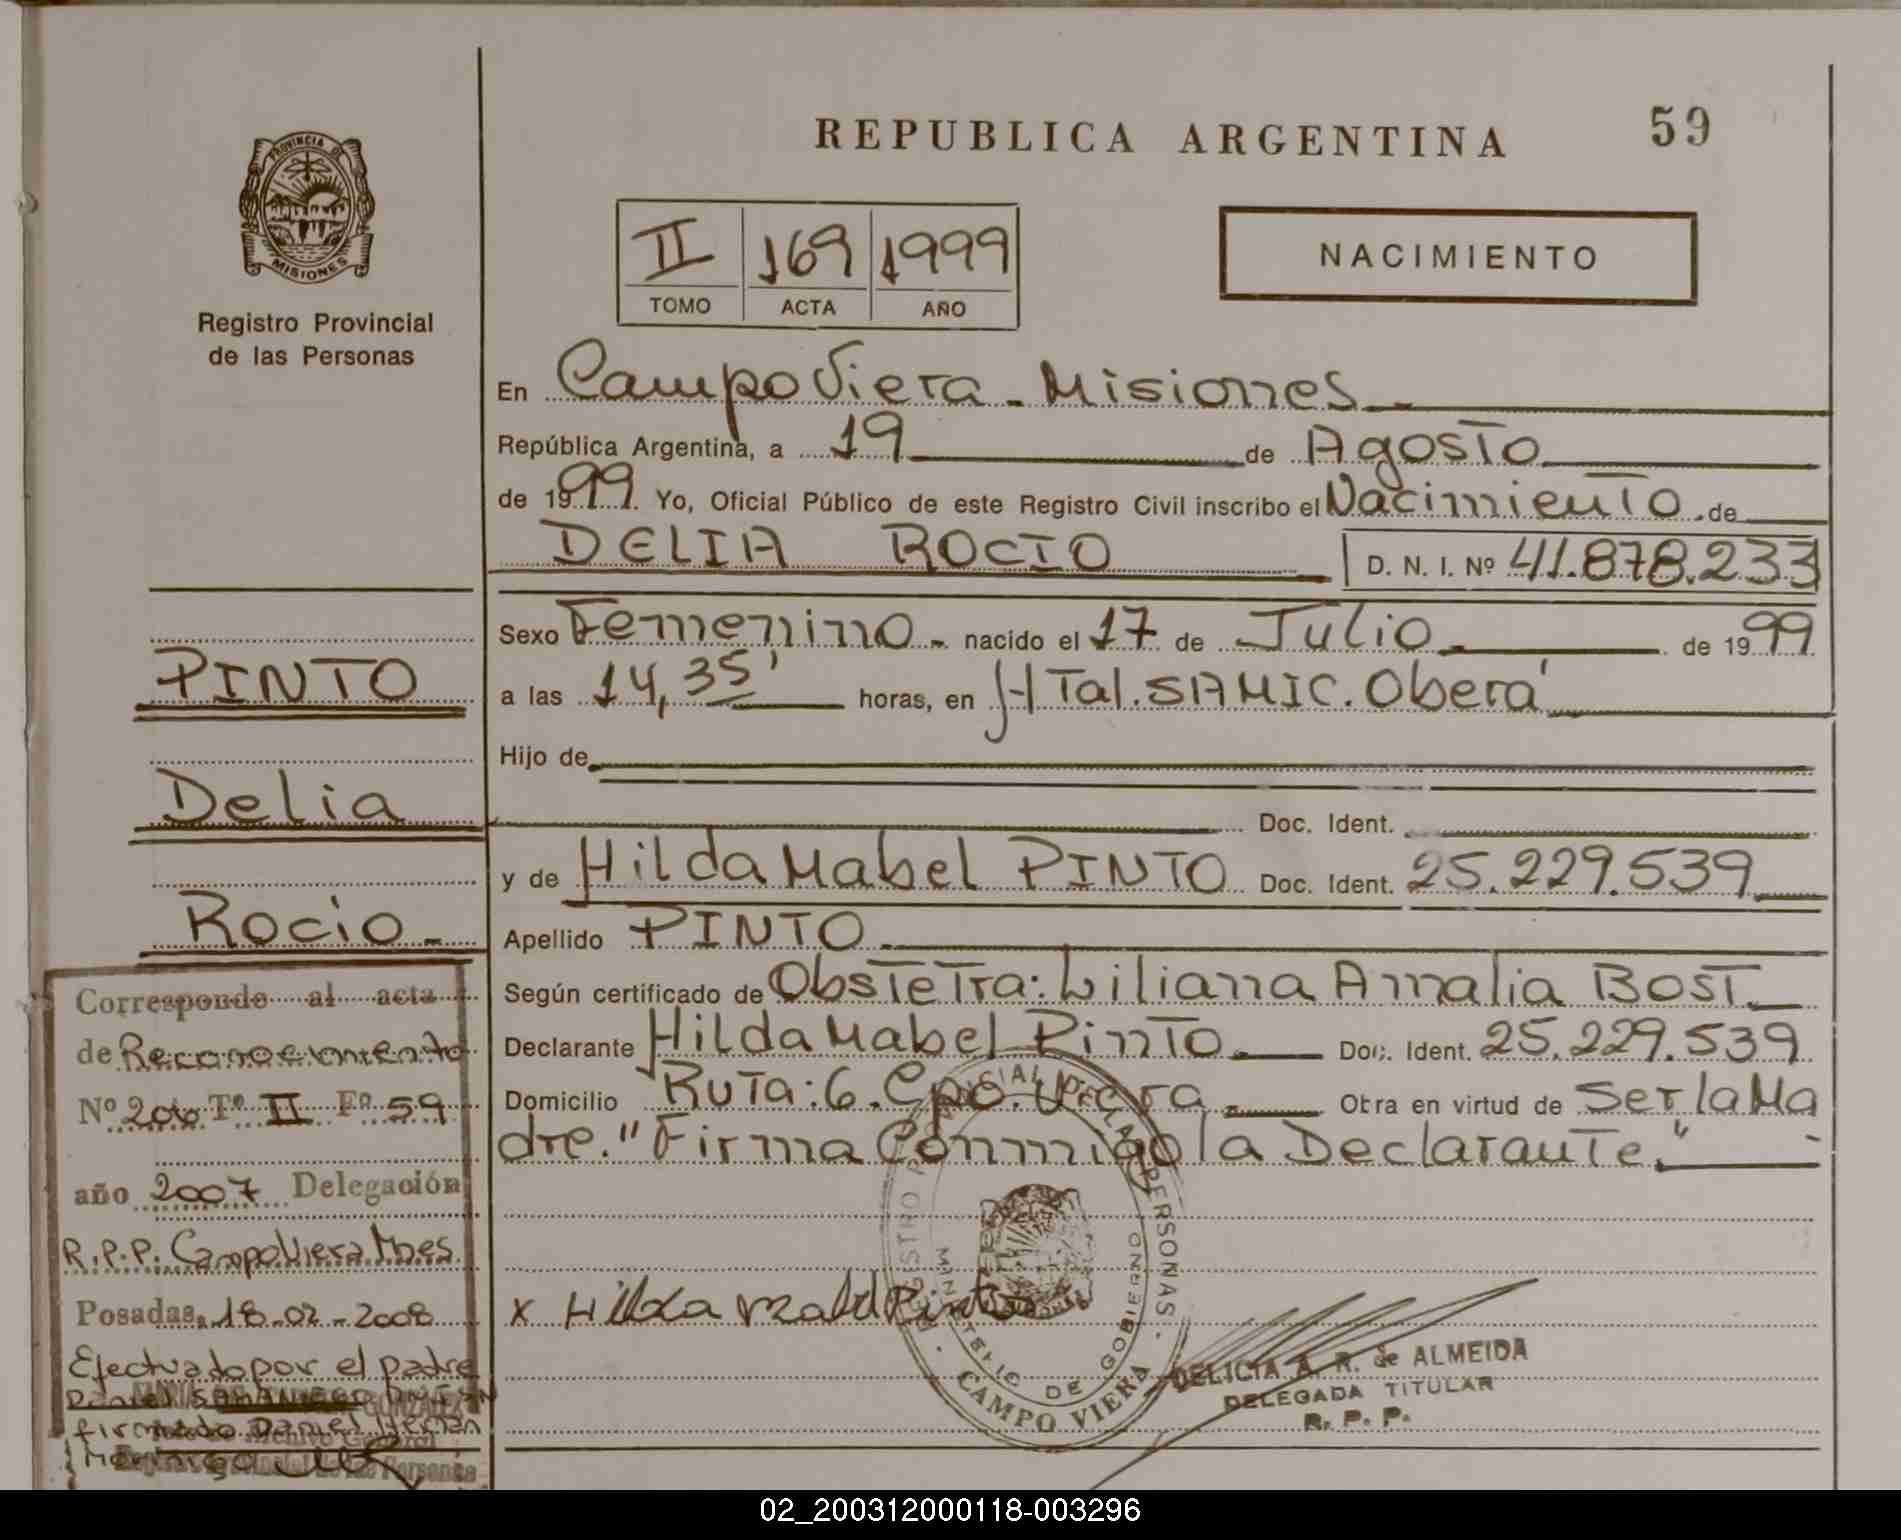 REPUBLICA ARGENTINA
59
PROVINCIA DE
MISIONES
Registro Provincial
de las Personas
II 169 1999
TOMO ACTA AÑO
NACIMIENTO
En Campo Viera - Misiones -
República Argentina, a 19 de Agosto
de 1999. Yo, Oficial Público de este Registro Civil inscribo el Nacimiento de
DELIA ROCIO D. N. I. Nº 41.878.233
Sexo Femenino - nacido el 17 de Julio de 1999
a las 14,35' horas, en HTal. SAMIC. Oberá
Hijo de
Doc. Ident.
y de Hilda Mabel PINTO Doc. Ident. 25.229.539
Apellido PINTO
Según certificado de Obstetra: Liliana Amalia BOST
Declarante Hilda Mabel Pinto Doc. Ident. 25.229.539
Domicilio Ruta: 6. Cpo. Viera Obra en virtud de Ser la Ma
dre. "Firma Conmigo la Declarante."
x Hilda Mabel Pinto
REGISTRO PROVINCIAL DE LAS PERSONAS
MINISTERIO DE GOBIERNO
CAMPO VIERA
DELICIA A. R. de ALMEIDA
DELEGADA TITULAR
R. P. P.
PINTO
Delia
Rocio -
Corresponde al acta
de Reconocimiento
Nº 206 Tº II Fº 59
año 2007 Delegación
R.P.P. Campo Viera Mnes.
Posadas, 18-02-2008
Efectuado por el padre
Daniel
firmado Daniel
02_200312000118-003296